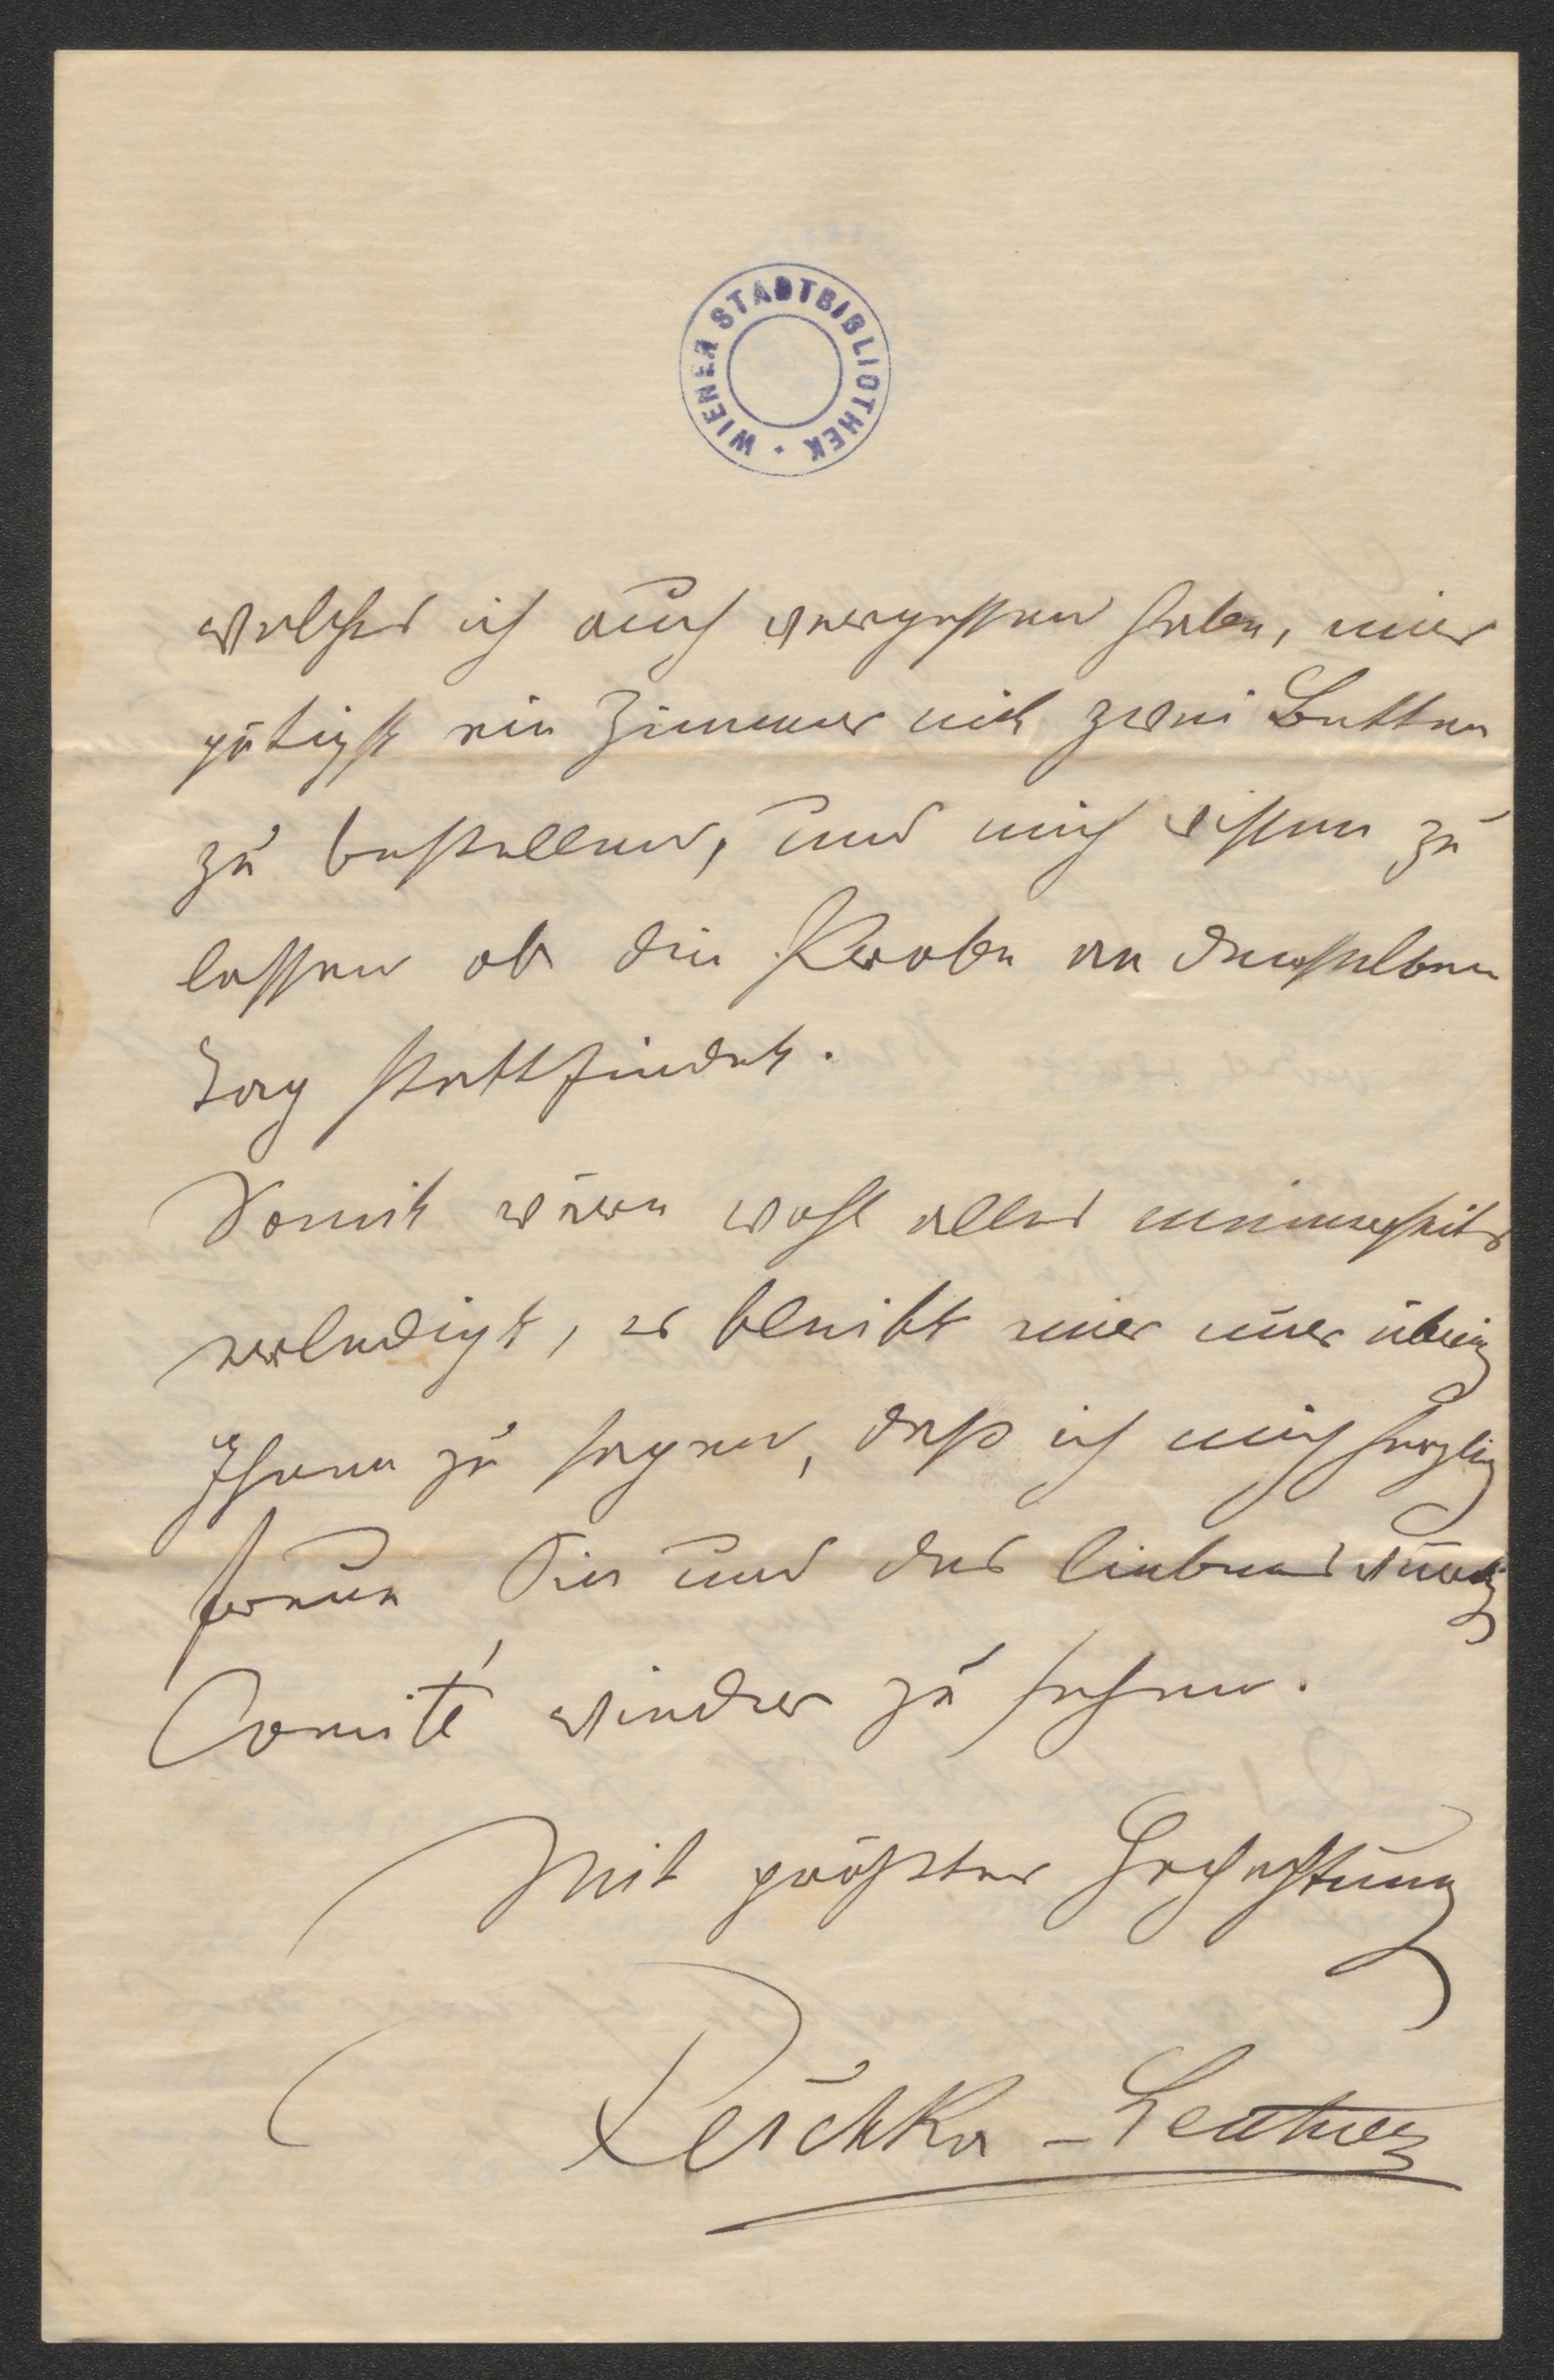 WIENER STADTBIBLIOTHEK
welches ich auch vergessen habe, mir
gütigst ein Zimmer mit zwei Betten
zu bestellen, und mich wissen zu
lassen ob die Probe an demselben
Tag stattfindet.
Somit wäre wohl alles meinerseits
erledigt, es bleibt mir nur übrig
Ihnen zu sagen, daß ich mich herzlich
freue Sie und das liebenswürdig
Comité wieder zu sehen.
Mit größter Hochachtung
Peschka-Leutner